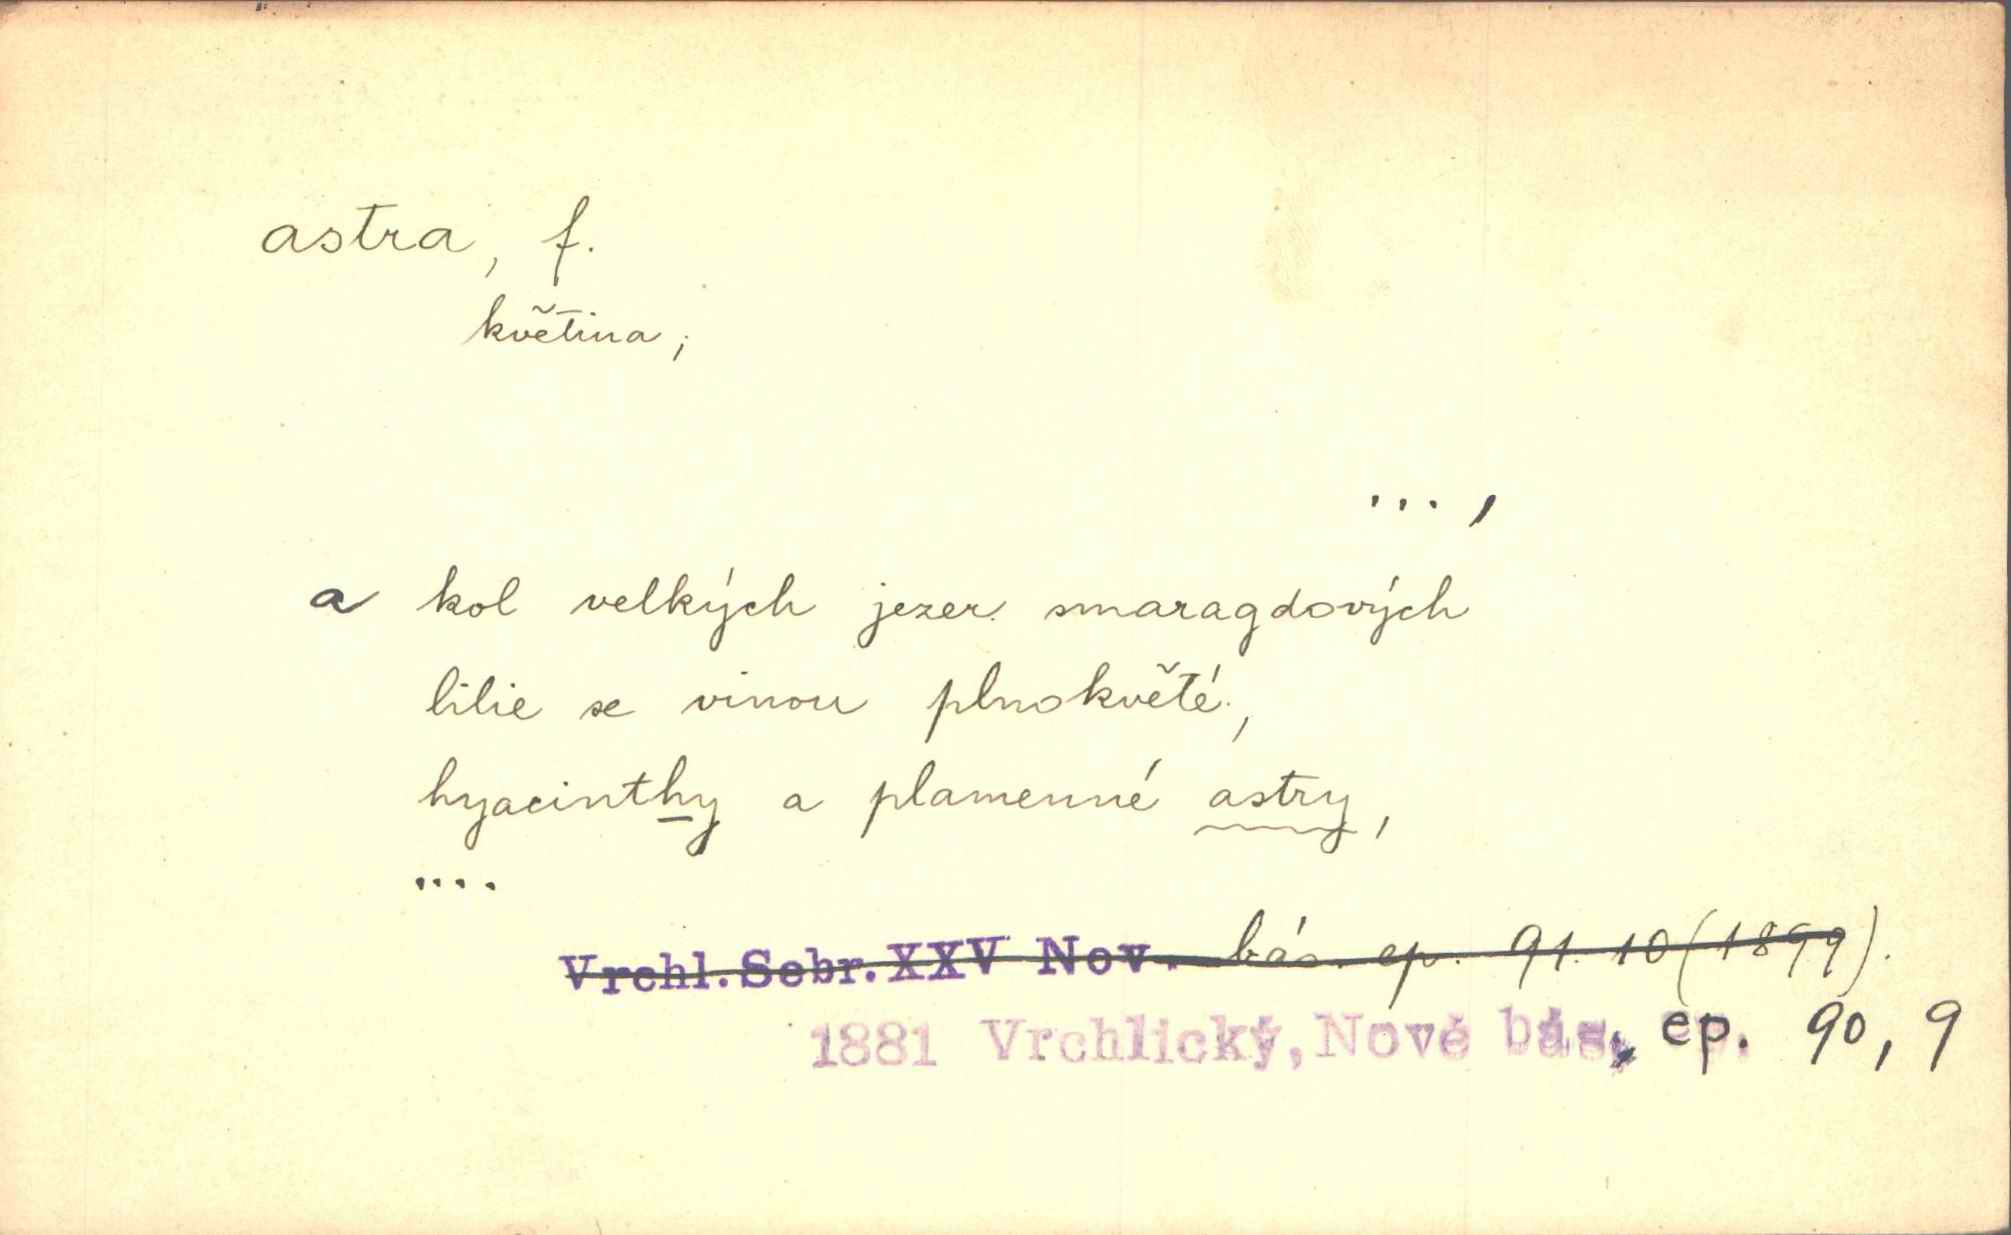 astra, f.
květina;
...,
a kol velkých jezer smaragdových
lilie se vinou plnokvěté,
hyacinthy a plamenné astry,
....
Vrchl. Sebr. XXV Nov. bás. ep. 91. 10 (1899).
1881 Vrchlický, Nové bás., ep. 90, 9